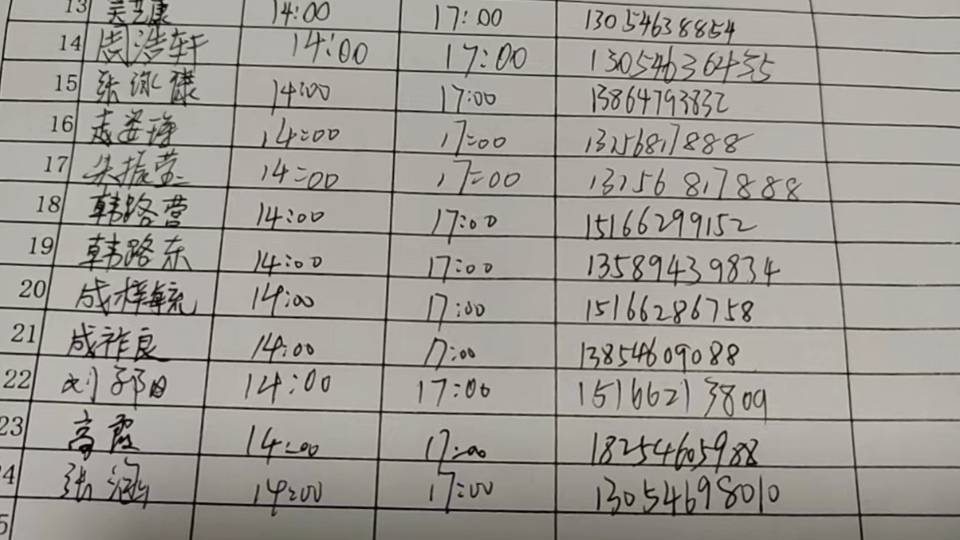 13 吴艺康 14:00 17:00 13054638854
14 周浩轩 14:00 17:00 13054636455
15 张泳健 14:00 17:00 13864793832
16 14:00 17:00 13256817888
17 朱振莹 14:00 17:00 13256817888
18 韩路营 14:00 17:00 15166299152
19 韩路东 14:00 17:00 13589439834
20 成样毓 14:00 17:00 15166286758
21 成祚良 14:00 17:00 13854609088
22 刘 14:00 17:00 15166213809
23 高霞 14:00 17:00 18254605988
4 张涵 14:00 17:00 13054698010
5